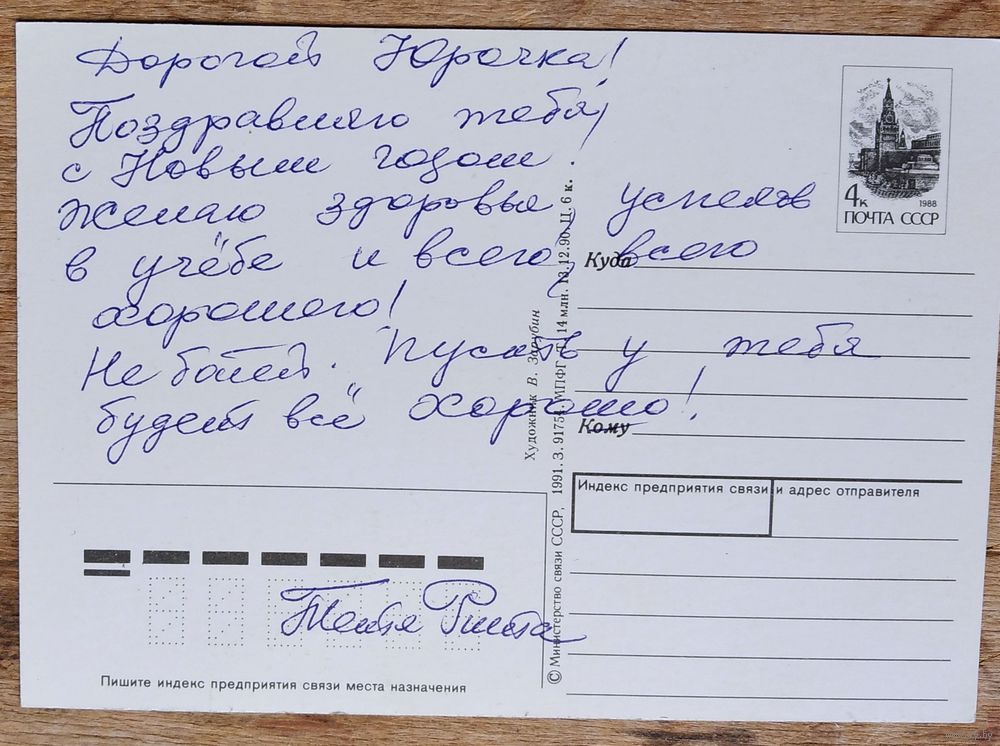 Дорогой Юрочка!
Поздравляю тебя
с Новым годом!
Желаю здоровья, успехов
в учёбе и всего, всего
хорошего!
Не болей. Пусть у тебя
будет всё хорошо!
Тетя Рита
4к
1988
ПОЧТА СССР
Куда
Кому
Индекс предприятия связи и адрес отправителя
Художник В. Зарубин
© Министерство связи СССР, 1991. З. 91754. МПФГ. Т. 14 млн. 13.12.90. Ц. 6 к.
Пишите индекс предприятия связи места назначения